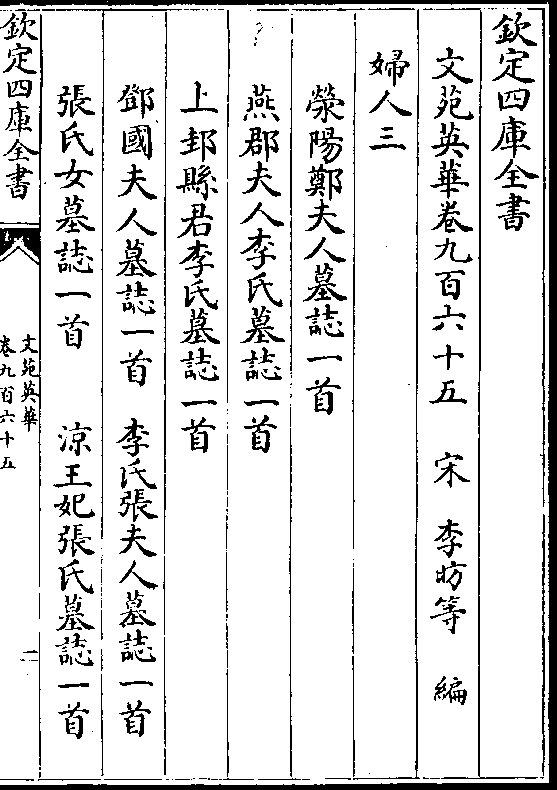 欽定四庫全書
文苑英華卷九百六十五　宋　李昉等　編
婦人三
滎陽鄭夫人墓誌一首
燕郡夫人李氏墓誌一首
上邽縣君李氏墓誌一首
鄧國夫人墓誌一首　李氏張夫人墓誌一首
張氏女墓誌一首　涼王妃張氏墓誌一首
欽定四庫全書
文苑英華
卷九百六十五
一